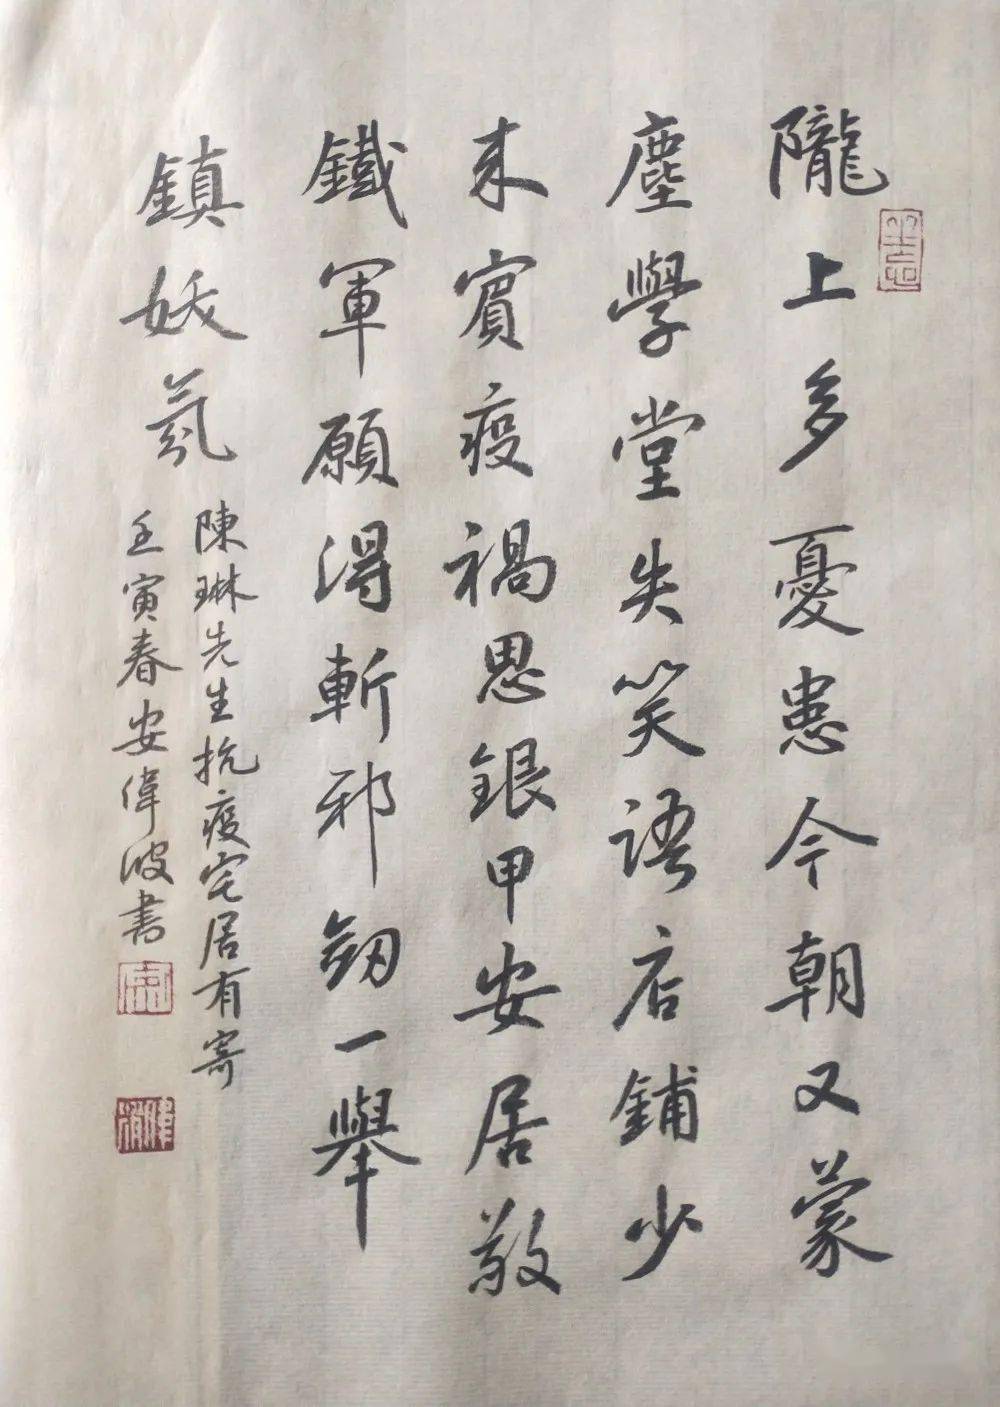 隴上多憂患今朝又蒙
塵學堂失笑語店鋪少
來賓疫禍思銀甲安居敬
鐵軍願得斬邪劒一舉
鎮妖氛
陳琳先生抗疫宅居有寄
壬寅春安偉波書